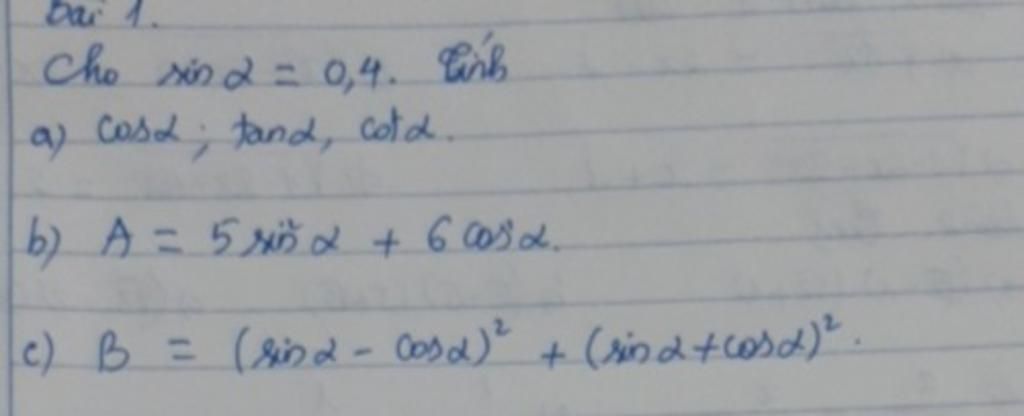 Bài 1.
Cho sin α = 0,4. Tính
a) cosα; tanα, cotα.
b) A = 5 sin²α + 6 cos²α.
c) B = (sinα - cosα)² + (sinα + cosα)².